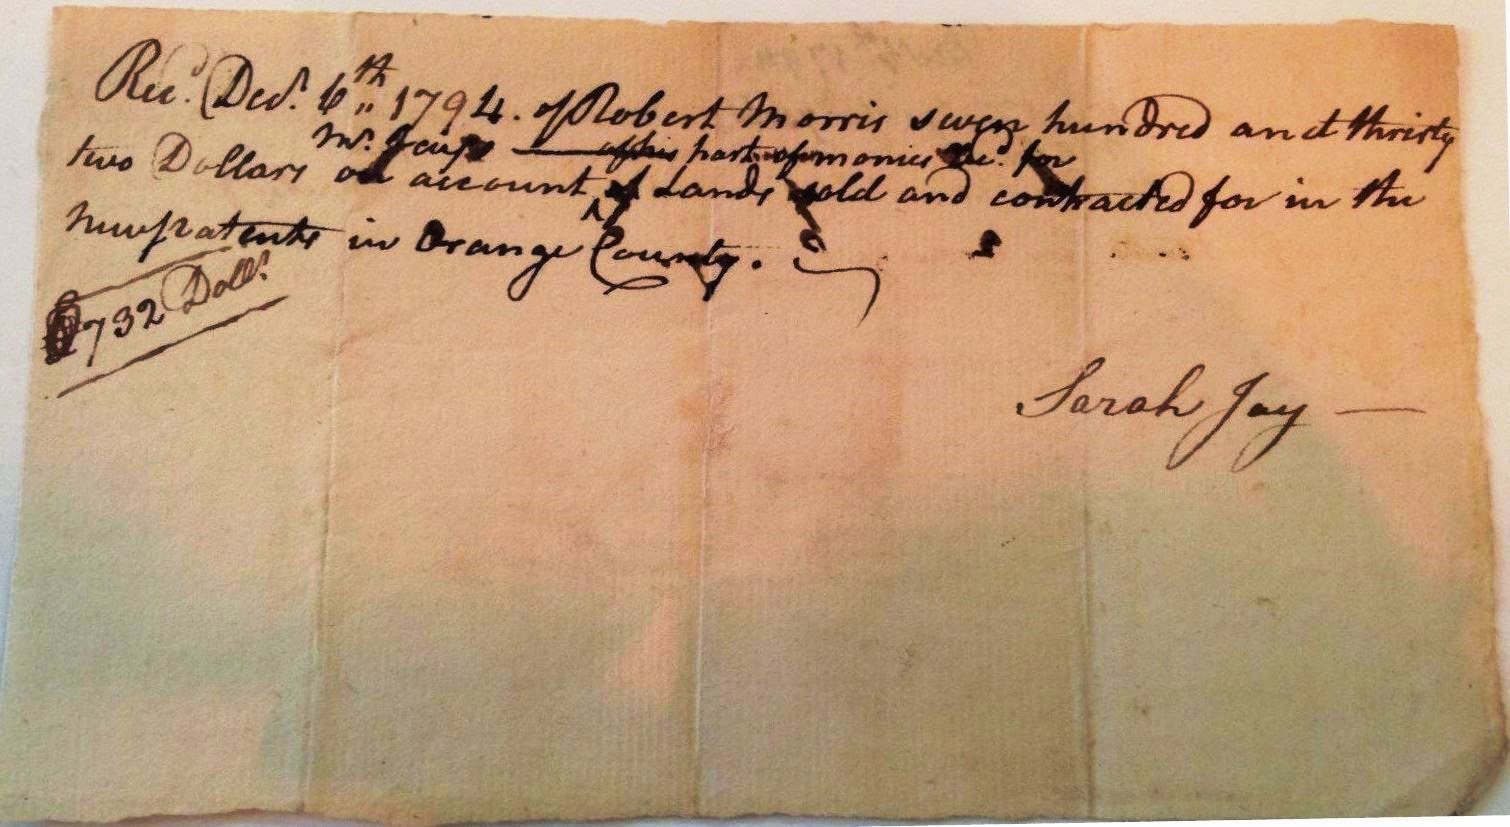 Rec.d Decr. 6th 1794. of Robert Morris seven hundred and thirty
Mr. Jay's of his part of monies Rec.d for
two Dollars on account of Lands sold and contracted for in the
new patents in Orange County.
732 Dolls.
Sarah Jay —